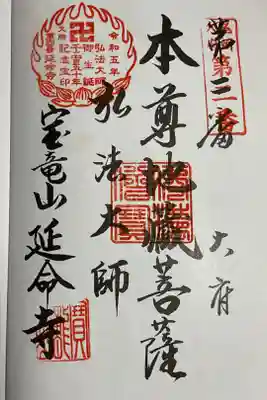 大府
本尊地蔵菩薩
弘法大師
宝竜山延命寺
令和五年
弘法大師
御生誕
千二百五十年
記念宝印